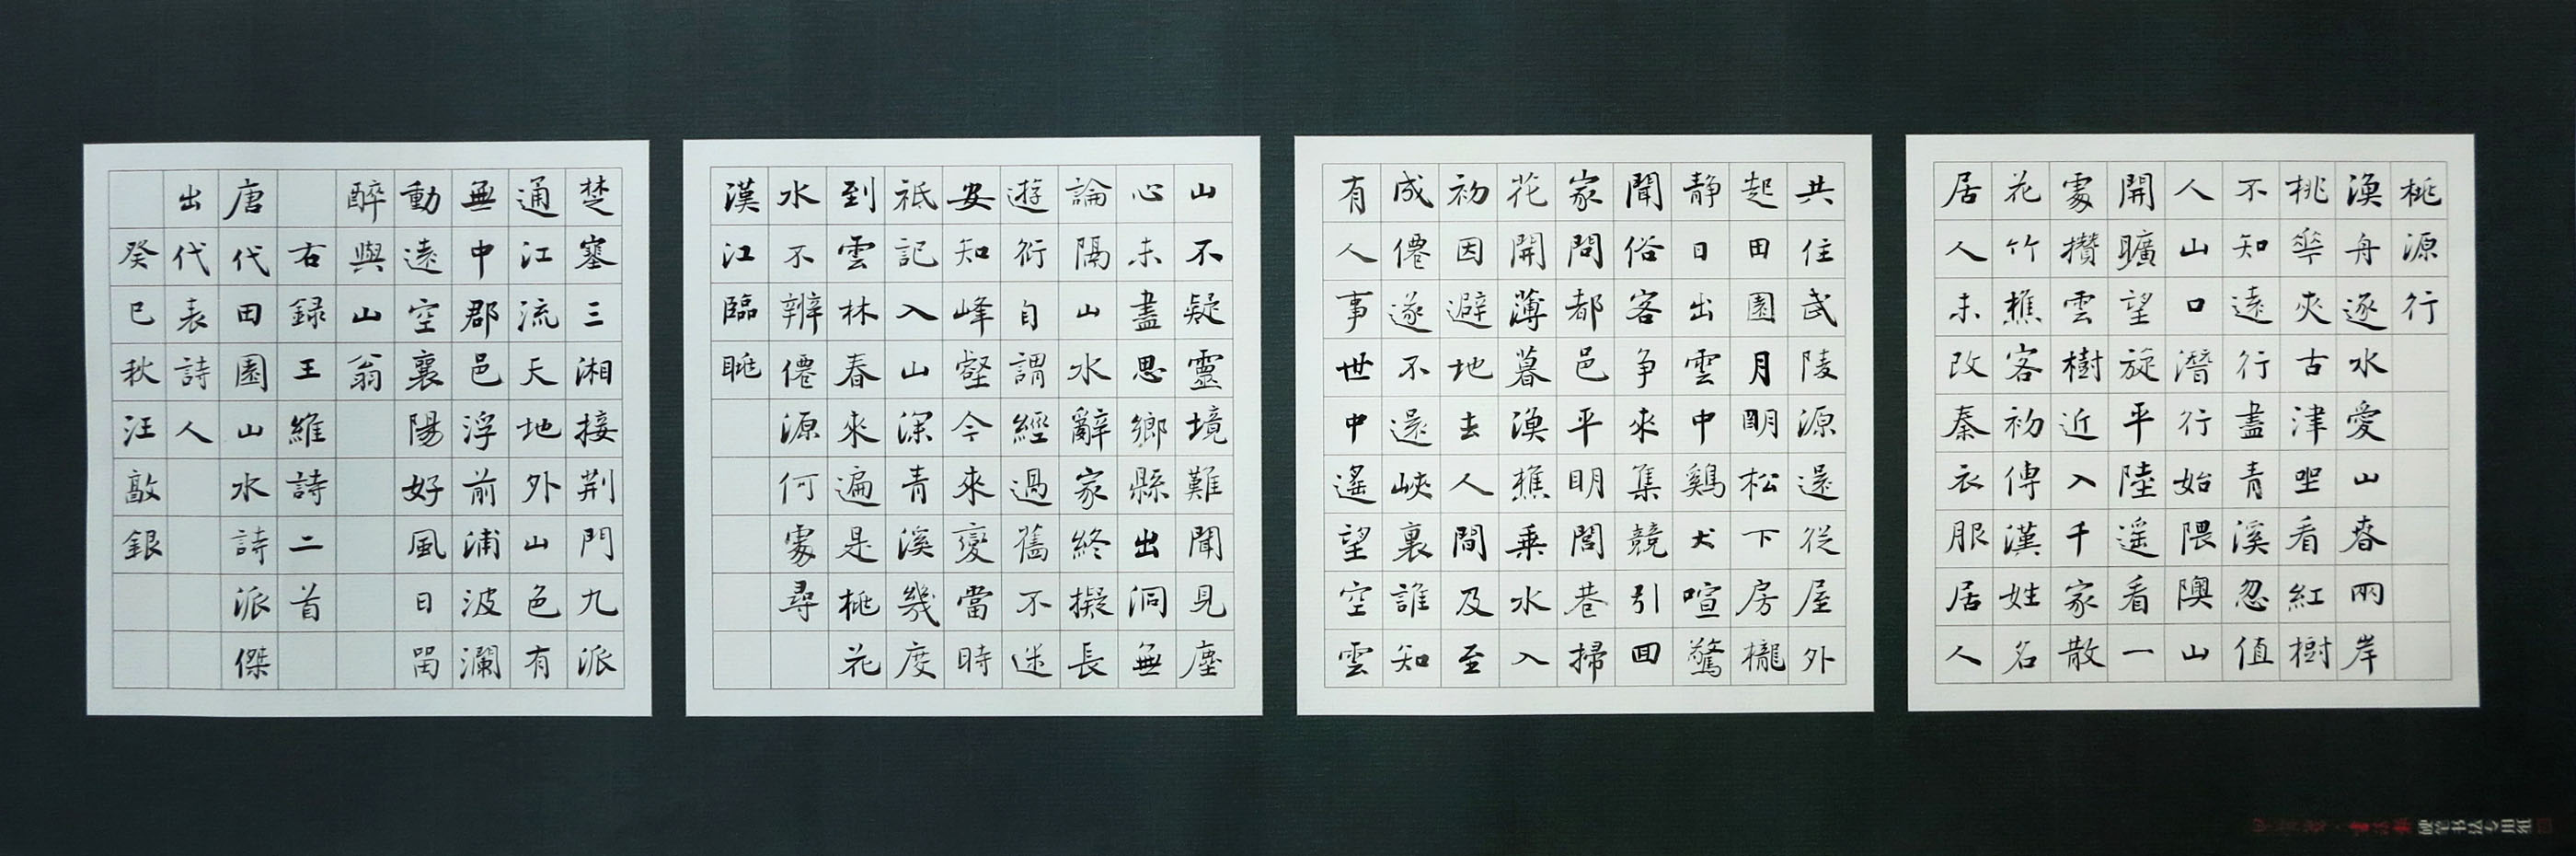 桃源行
漁舟逐水愛山春兩岸
桃華夾古津坐看紅樹
不知遠行盡青溪忽值
人山口潛行始隈隩山
開曠望旋平陸遥看一
處攢雲樹近入千家散
花竹樵客初傳漢姓名
居人未改秦衣服居人
共住武陵源還從屋外
起田園月明松下房櫳
静日出雲中鷄犬喧驚
聞俗客争來集競引回
家問都邑平明閭巷掃
花開薄暮漁樵乘水入
初因避地去人間及至
成僊遂不還峽裏誰知
有人事世中遙望空雲
山不疑靈境難聞見塵
心未盡思鄉縣出洞無
論隔山水辭家終擬長
遊衍自謂經過舊不迷
安知峰壑今來變當時
祇記入山深青溪幾度
到雲林春來遍是桃花
水不辨僊源何處尋
漢江臨眺
楚塞三湘接荆門九派
通江流天地外山色有
無中郡邑浮前浦波瀾
動遠空襄陽好風日留
醉與山翁
右録王維詩二首
唐代田園山水詩派傑
出代表詩人
癸巳秋汪銀
书法报 硬笔书法专用纸